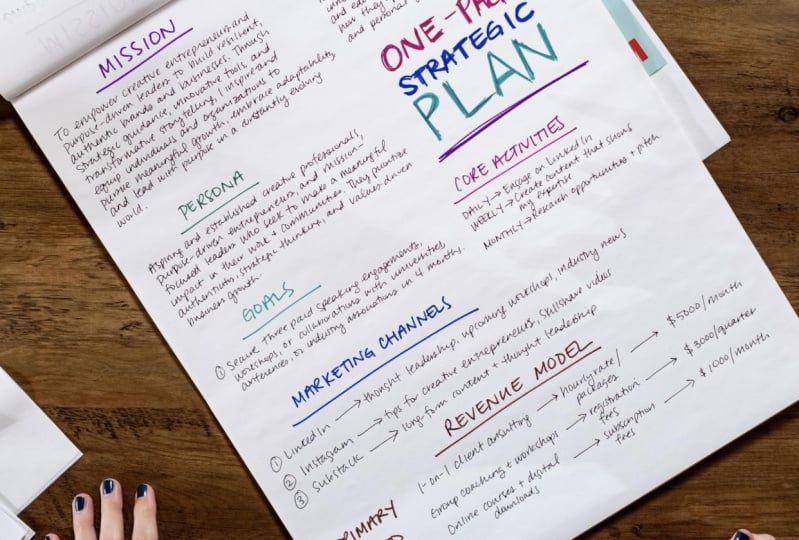 and personal
ONE-PAGE
STRATEGIC
PLAN
MISSION
To empower creative entrepreneurs and
purpose-driven leaders to build resilient,
authentic brands and businesses. Through
strategic guidance, innovative tools, and
transformative storytelling, I inspire and
equip individuals and organizations to
pursue meaningful growth, embrace adaptability,
and lead with purpose in a constantly evolving
world.
PERSONA
Aspiring and established creative professionals,
purpose-driven entrepreneurs, and mission-
focused leaders who seek to make a meaningful
impact in their work + communities. They prioritize
authenticity, strategic thinking, and values-driven
business growth.
CORE ACTIVITIES
DAILY → Engage on LinkedIn
WEEKLY → Create content that shows
my expertise
MONTHLY → Research opportunities + pitch
GOALS
① Secure three paid speaking engagements,
workshops, or collaborations with universities,
conferences, or industry associations in 4 months.
MARKETING CHANNELS
① LinkedIn → thought leadership, upcoming workshops, industry news
② Instagram → tips for creative entrepreneurs, Skillshare videos
③ Substack → long-form content + thought leadership
REVENUE MODEL
1-on-1 client consulting → hourly rate/ → $5000/month
packages
Group coaching + workshops → registration → $3000/quarter
fees
Online courses + digital → subscription → $1000/month
downloads fees
PRIMARY